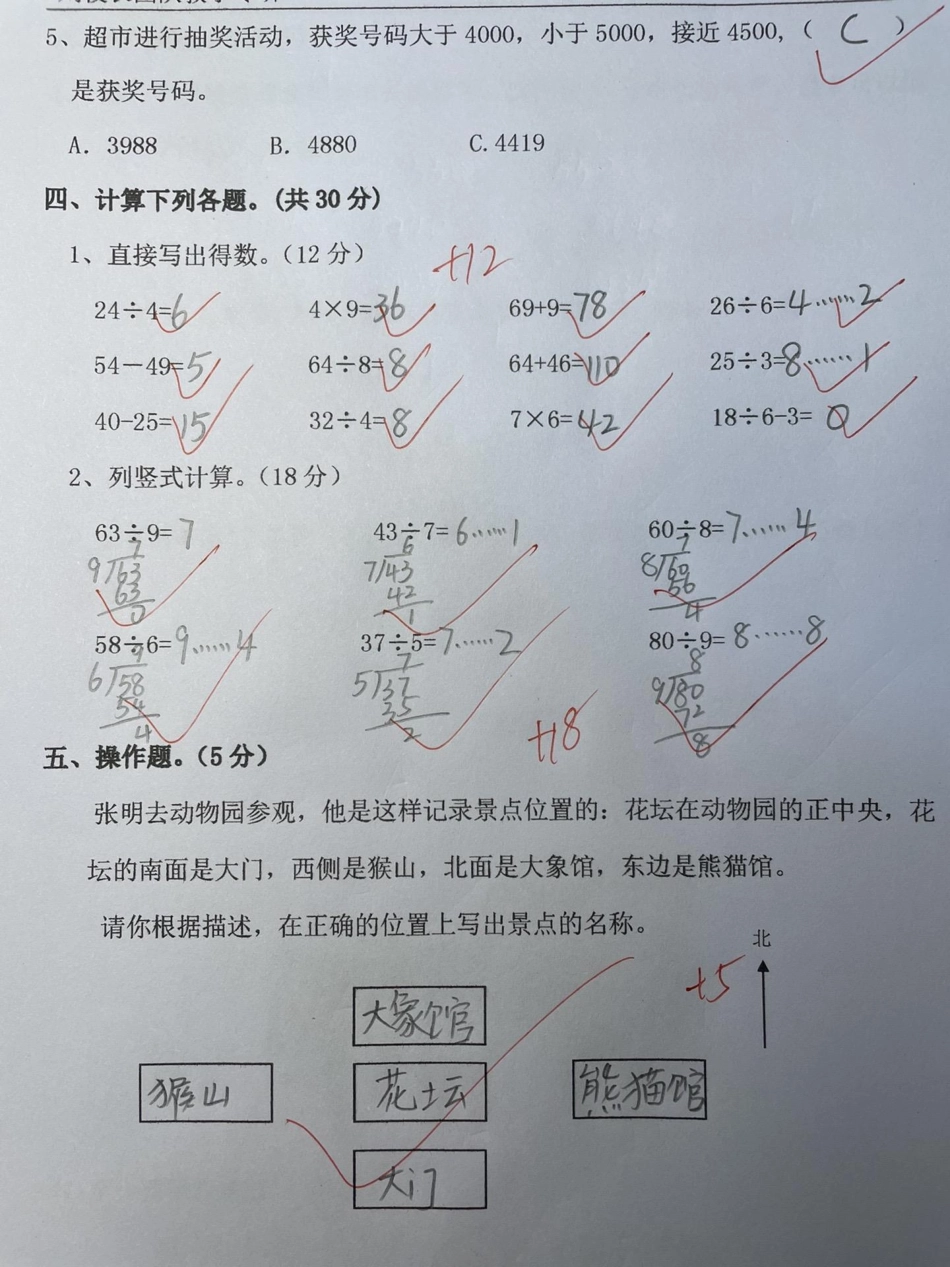 5、超市进行抽奖活动，获奖号码大于 4000，小于 5000，接近 4500，（ C ）
是获奖号码。
A. 3988 B. 4880 C. 4419
四、计算下列各题。（共 30 分）
1、直接写出得数。（12 分） +12
24÷4=6 4×9=36 69+9=78 26÷6=4……2
54－49=5 64÷8=8 64+46=110 25÷3=8……1
40-25=15 32÷4=8 7×6=42 18÷6-3= 0
2、列竖式计算。（18 分）
63÷9=7 43÷7=6……1 60÷8=7……4
7 6 7
9/63 7/43 8/60
63 42 56
0 1 4
58÷6=9……4 37÷5=7……2 80÷9=8……8
9 7 8
6/58 5/37 9/80
54 35 72
4 2 8
+18
五、操作题。（5 分）
张明去动物园参观，他是这样记录景点位置的：花坛在动物园的正中央，花
坛的南面是大门，西侧是猴山，北面是大象馆，东边是熊猫馆。
请你根据描述，在正确的位置上写出景点的名称。
北
+5
大象馆
猴山 花坛 熊猫馆
大门